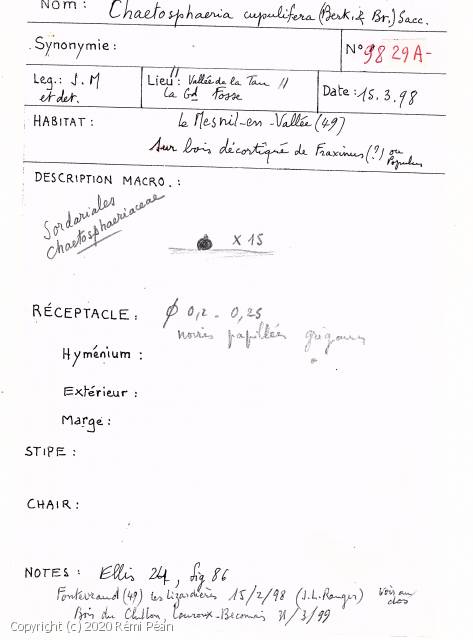 Nom : Chaetosphaeria cupulifera (Berk. & Br.) Sacc.
Synonymie :
N° 9829A-
Leg.: J. M et det.
Lieu : "Vallée de la Tau" La Gd Fosse
Date : 15.3.98
HABITAT : Le Mesnil-en-Vallée (49)
Sur bois décortiqué de Fraxinus (?) ou Populus
DESCRIPTION MACRO. :
Sordariales
Chaetosphaeriaceae
x 15
RÉCEPTACLE : ϕ 0,2 - 0,25
noires papillées grégaires
Hyménium :
Extérieur :
Marge :
STIPE :
CHAIR :
NOTES : Ellis 24, fig 86
Fontevraud (49) Les Lizardières 15/2/98 (J.L. Ranger) Voir au dos
Bois du Louroux-Beconnais /3/99
Copyright (c) 2020 Rémi Péan